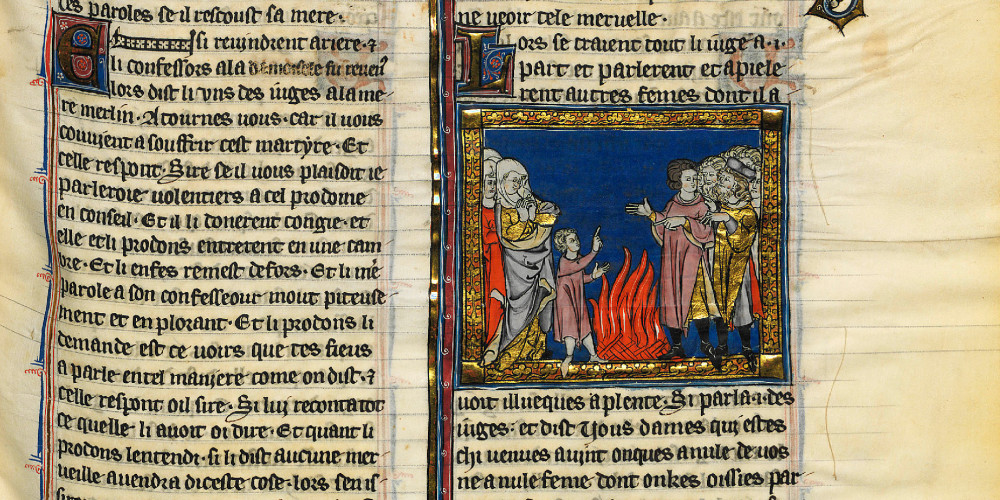 ces paroles se il rescoust sa mere·
Ensi reuindrent ariere· ⁊
li confessors ala
lors dist li vns des iuges a la me
re merlin· Atournes uous· car il uous
couuient a souffrir cest martyre· Et
celle respont· Sire se il uous plaisoit ie
parleroie volentiers a cel prodome
en conseil· Et il li donerent congie· et
elle et li prodons entrerent en une cam
bre· Et li enfes remest defors· Et li me
parole a son confesseour mout piteuse
ment et en plorant· Et li prodons li
demande est ce uoirs que tes fieus
a parle en tel maniere come on dist· ⁊
celle respont oil sire· Si lui reconta tot
ce quelle li auoit oi dire· Et quant li
prodons lentendi· si li dist aucune mer
ueille auendra di ceste cose· lors sen is
ne ueoir tele meruelle·
Lors se traient tout li iuge a· i·
part et parlerent et apiele
rent autres femes dont il a
uoit illueques a plente· Si parla· i· des
iuges· et dist Vous dames qui estes
chi uenues auint onques a nule de uos
ne a nule feme dont onkes oissies par